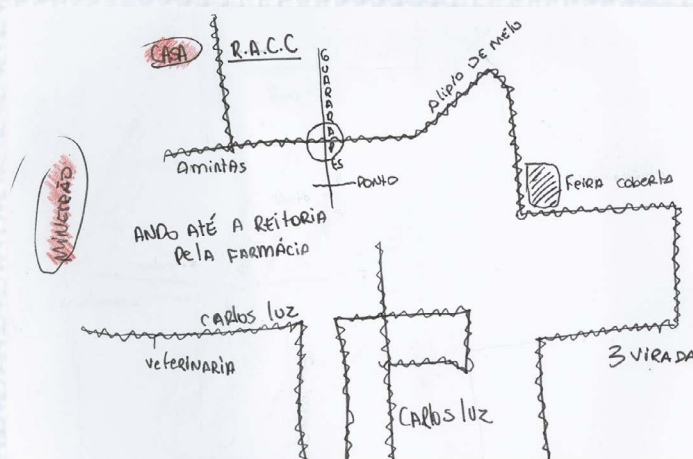 CASA
R.A.C.C
GUARARAPES
Plipio DE Melo
Amintas
PONTO
FEIRA COBERTA
MINEIRÃO
ANDO ATÉ A REITORIA
PELA FARMÁCIA
CARLOS LUZ
VETERINARIA
3 VIRADA
CARLOS LUZ